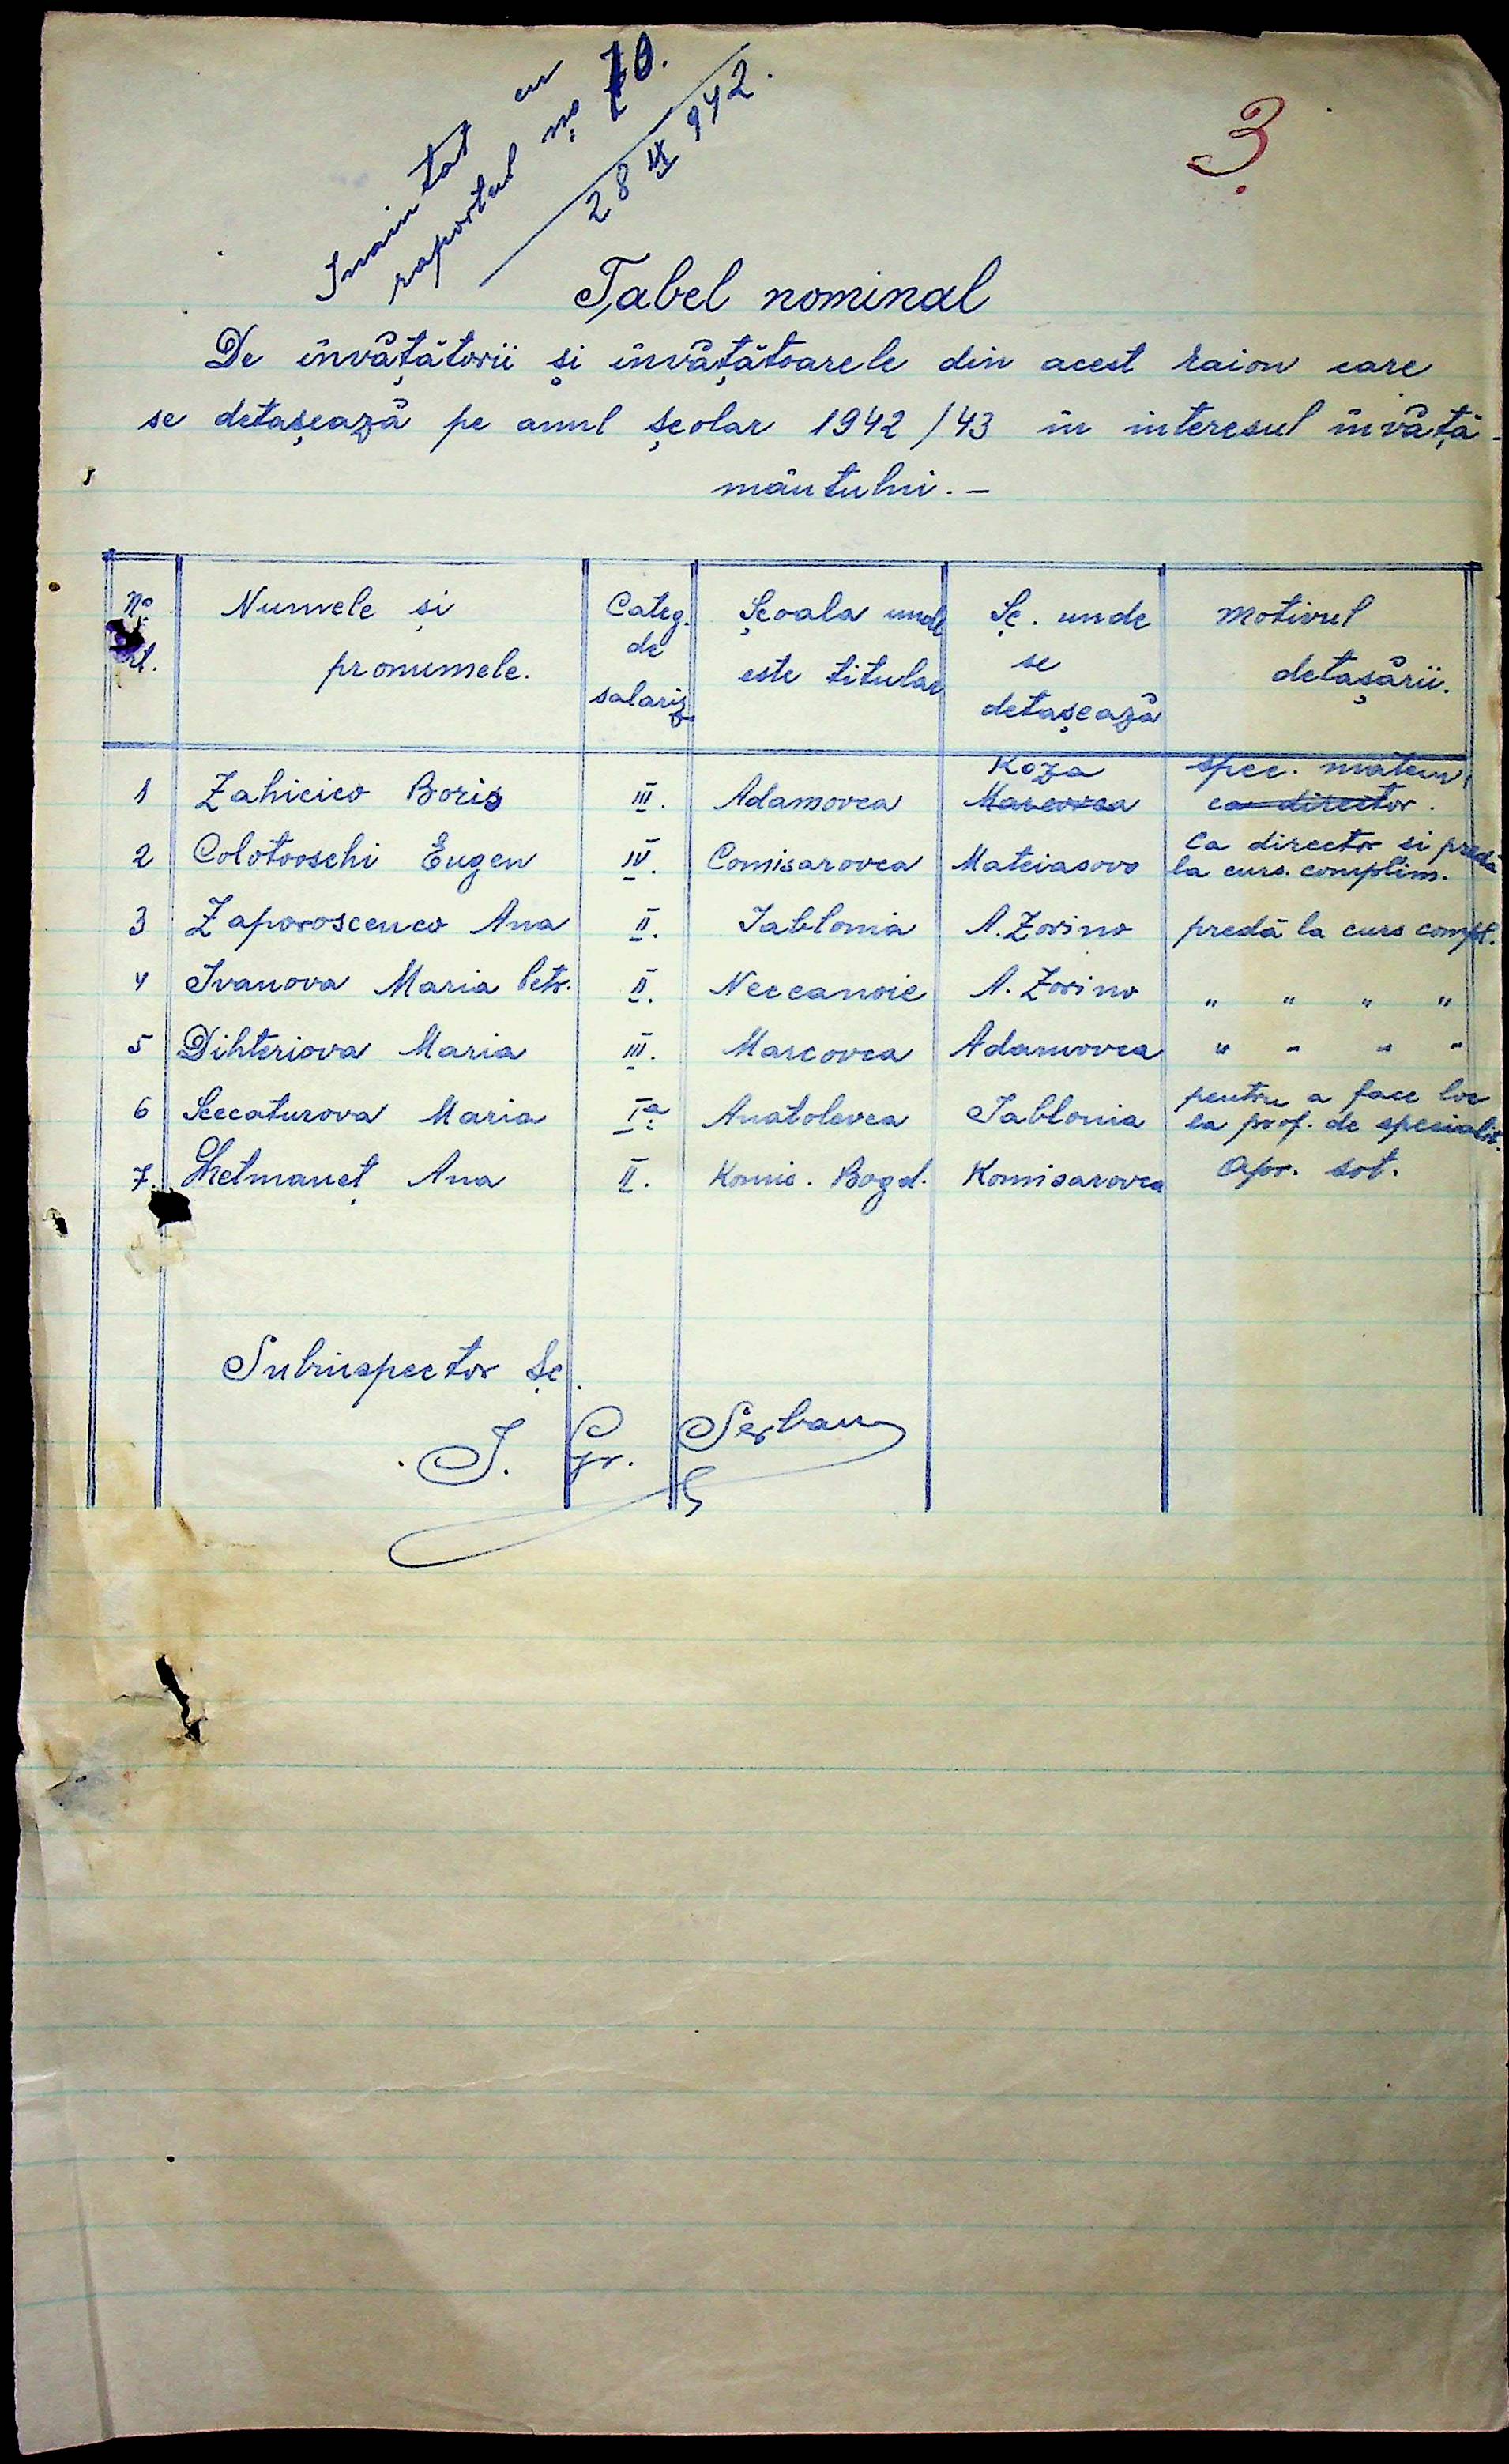 Inaintat cu
raportul nº 70.
28 IX 942.
3
Tabel nominal
De învățătorii și învățătoarele din acest raion care
se detașează pe anul școlar 1942/43 în interesul învăță-
mântului.-
Nº crt. | Numele și pronumele. | Categ. de salariz | Școala unde este titular | Șc. unde se detașează | Motivul detașării.
1 | Zahicico Boris | III. | Adamovca | Koza Marcovca | spec. matem. ca director.
2 | Colotovschi Eugen | IV. | Comisarovca | Mateiasovo | Ca director si predă la curs. complim.
3 | Zaporoscenco Ana | II. | Iablonia | A. Zorino | predă la curs compl.
4 | Ivanova Maria Petr. | II. | Neccanoie | A. Zorino | " " " "
5 | Dihteriova Maria | III. | Marcovca | Adamovca | " " " "
6 | Seccaturova Maria | I a. | Anatolevca | Iablonia | pentru a face loc la prof. de specialit.
7. | Ghetmaneț Ana | II. | Komis. Bogd. | Komisarovca | Apr. sot.
Subinspector Șc.
I. Gr. Serban